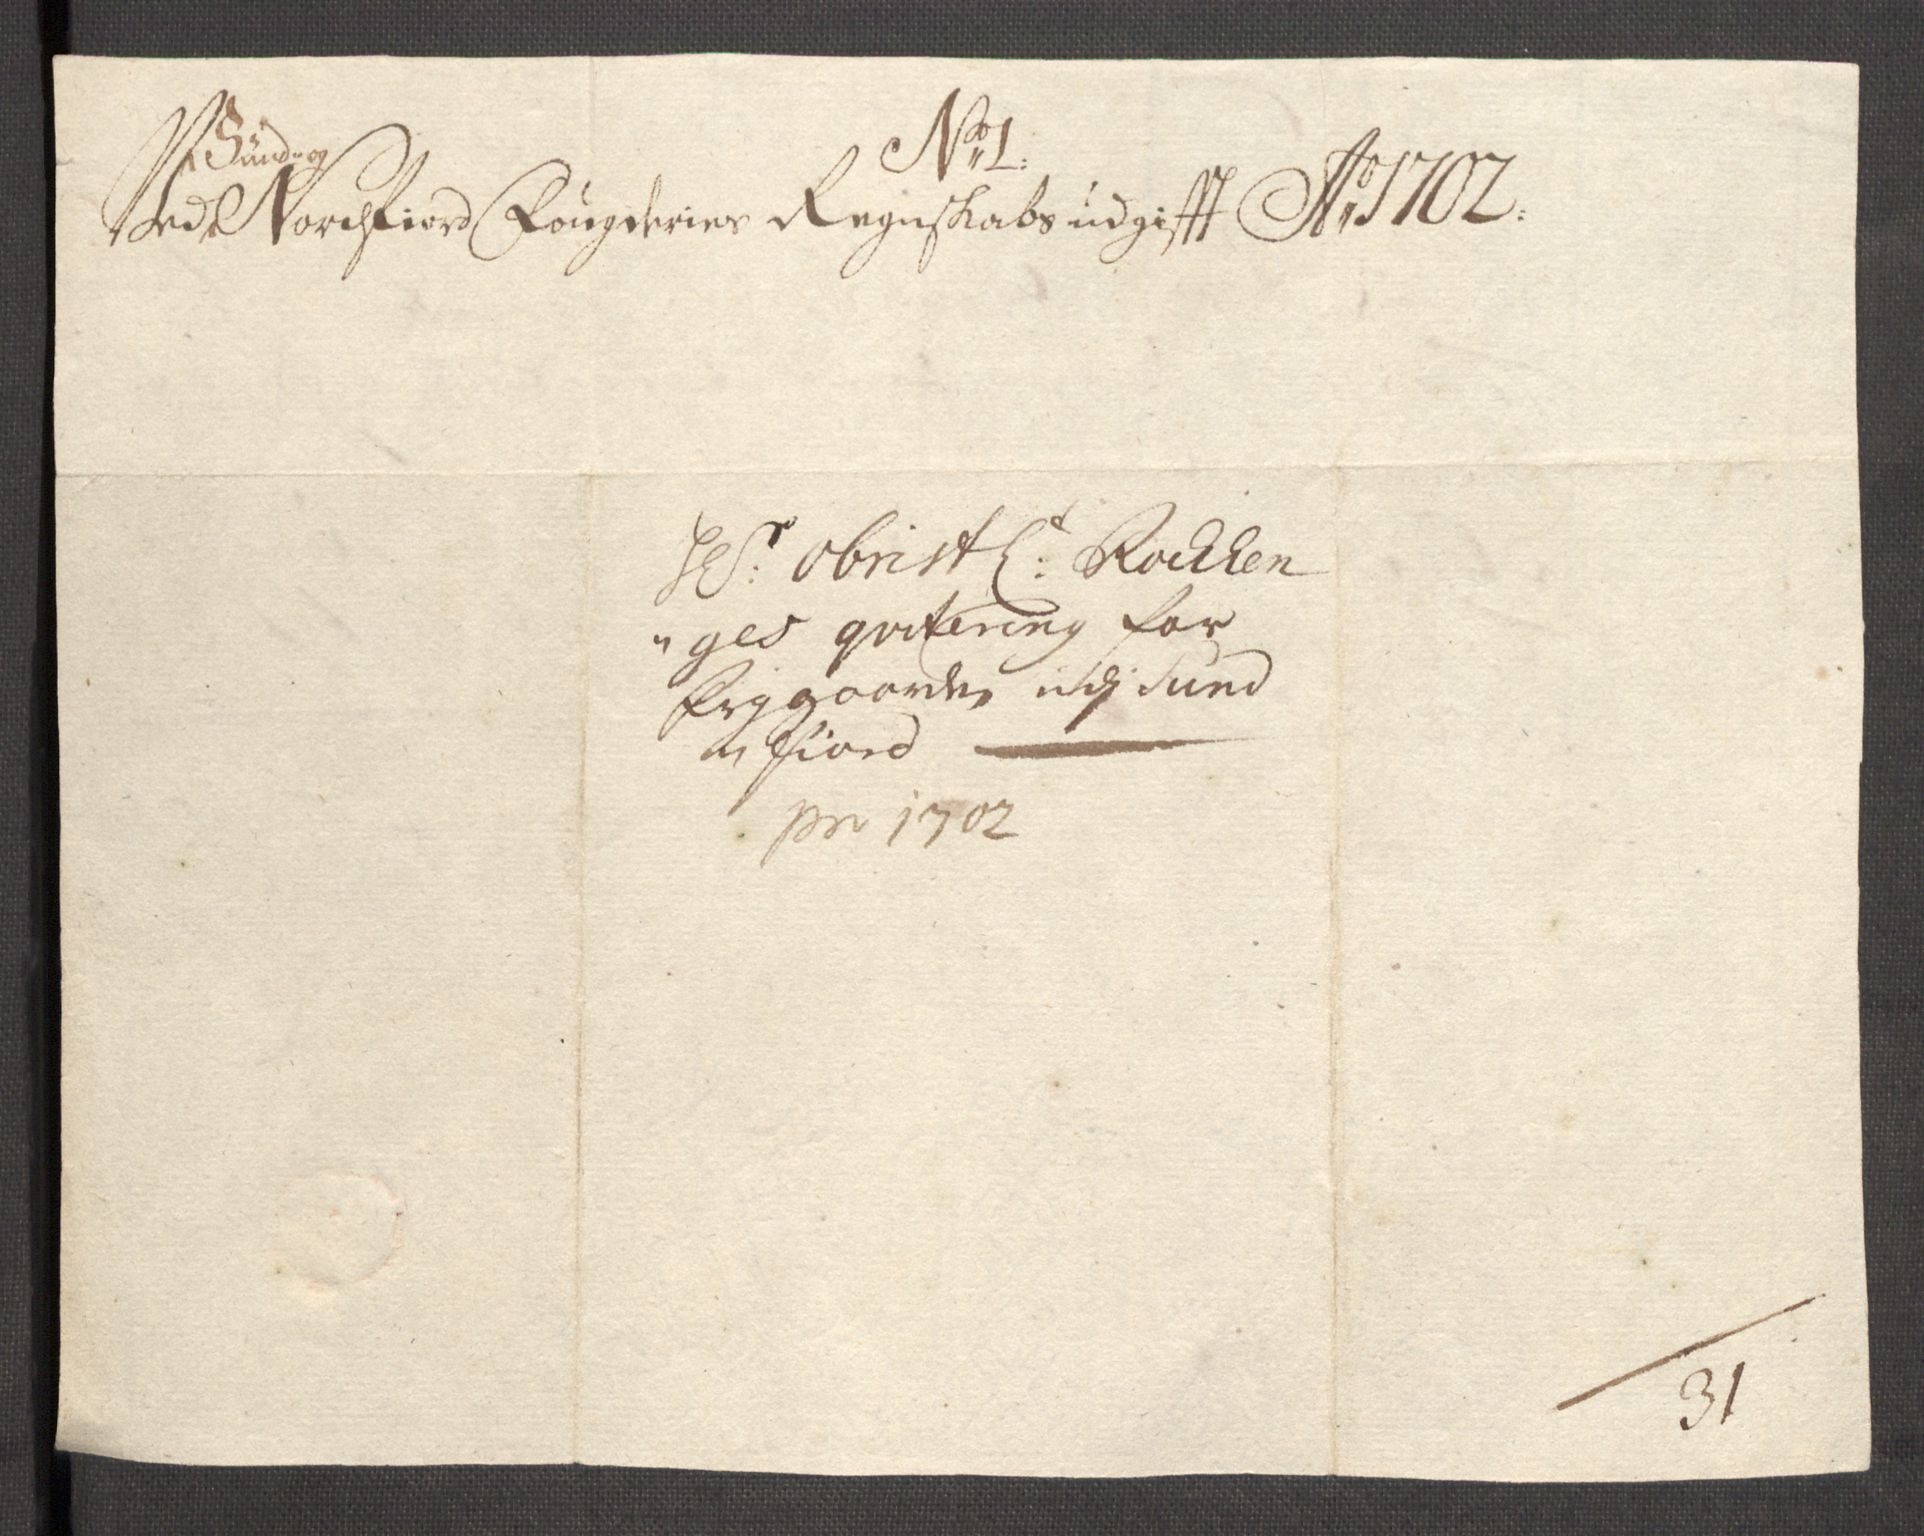 No 1:
Sünd- og
Ved Nordfiord Fougderies Regnskabs udgifft Ao 1702:
Hr: Obrist Lt: Rocklen
"ges qvitering for
frygaarder udj Sund
" fiord
pro 1702
31